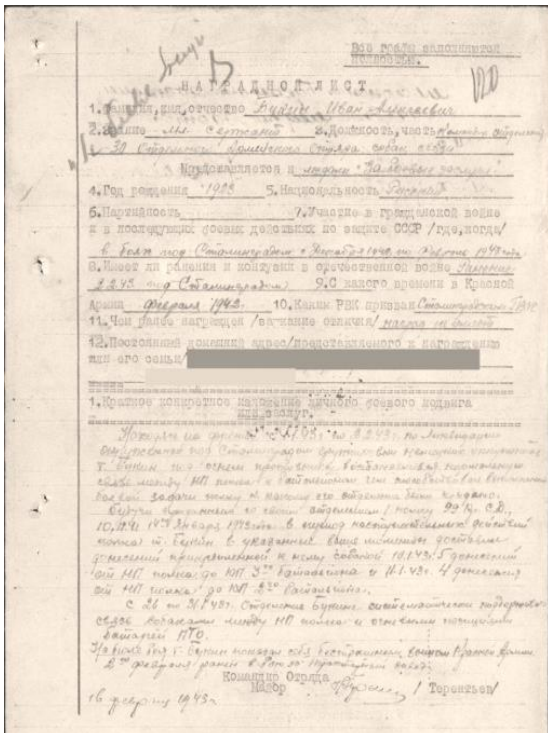 Все графы заполняются
полностью.
НАГРАДНОЙ ЛИСТ
1. Фамилия, имя, отчество Букин Иван
2. Звание мл. сержант 3. Должность, часть Командир отделения
30 Отдельного Армейского отряда собак связи
Представляется к медали "За боевые заслуги"
4. Год рождения 1903 5. Национальность Русский
6. Партийность 7. Участие в гражданской войне
и в последующих боевых действиях по защите СССР /где, когда/
в боях под Сталинградом с Декабря 1942 по Февраль 1943 года
8. Имеет ли ранения и контузии в отечественной войне Ранение
2.2.43 под Сталинградом 9. С какого времени в Красной
Армии февраля 1942 10. Каким РВК призван Сталинградским ГВК
11. Чем ранее награжден /за какие отличия/
12. Постоянный домашний адрес/представляемого к награждению
или его семьи/
1. Краткое конкретное изложение личного боевого подвига
или заслуг.
Находясь на фронте с по 2.2.43г. по ликвидации
окруженной под Сталинградом группировки немецких оккупантов
т. Букин под огнем противника восстанавливал нормальную
связь между НП полка и батальоном чем способствовал выполнению
боевой задачи полку к которому его отделение было придано.
Будучи со своим отделением полку 99 С.Д.,
10, 11 и 14го Января 1943 года в период наступательных действий
полка т. Букин в указанные выше моменты доставил
донесений прикрепленной к нему собакой 10.1.43г. 5 донесений
от НП полка до КП 3го батальона и 11.1.43г. 4 донесения
от НП полка до КП 2го батальона.
С 26 по 31.1.43г. Отделение Букина систематически поддерживало
связь собаками между НП полка и огневыми позициями
батарей ПТО.
На поле боя т. Букин показал себя бесстрашным воином Красной Армии.
2го февраля ранен в р-не завод.
Командир Отряда
Майор /Терентьев/
февраля 1943г.